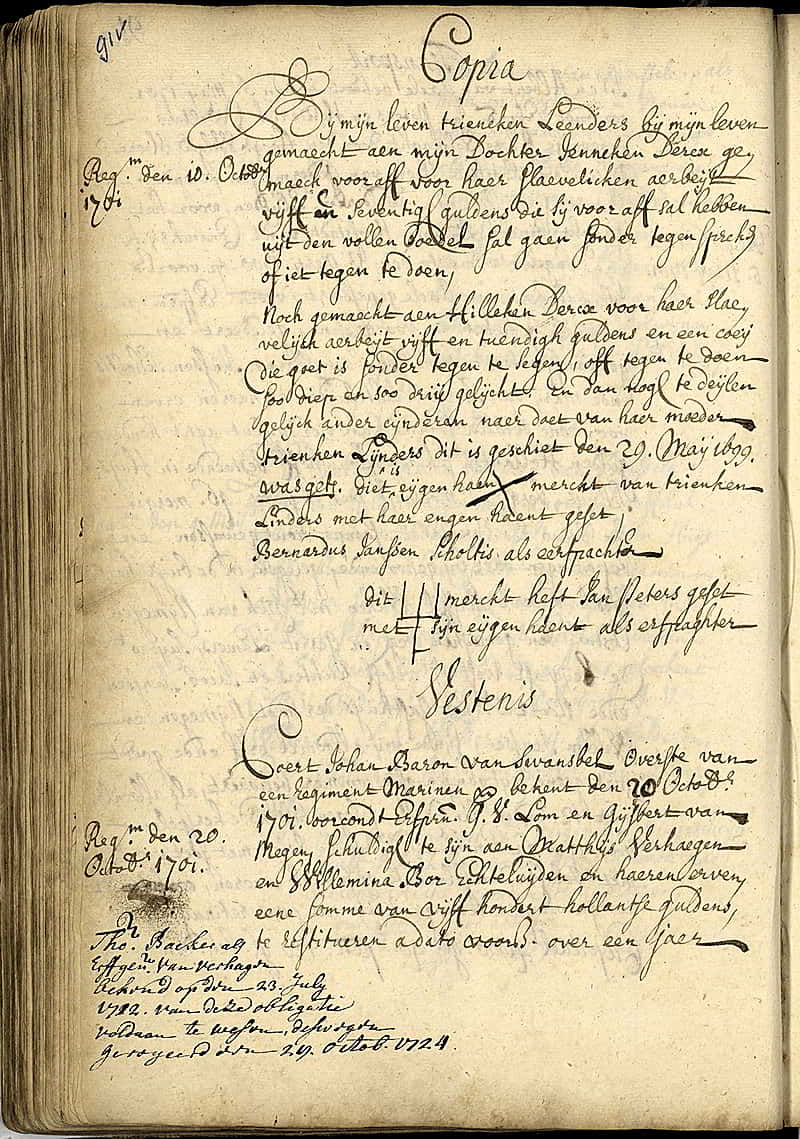 91v
Copia
Bij mijn leven trieneken Leenders bij mijn leven
gemaecht aen mijn Dochter Jenneken Dercx ge,
Reg.m den 10. Octobr
1701
maeck vooraff voor haer slaevelicken aerbeijt
vijff en seventigh guldens die sij vooraff sal hebben
uijt den vollen boedel sal gaen sonder tegen
of iet tegen te doen,
Noch gemaecht aen Hilleken Dercx voor haer slae,
velijck aerbeijt vijff en tuendigh guldens en een coeij
die goet is sonder tegen te segen, off tegen te doen
soo diep en soo gelijcht. En dan nogh te deijlen
gelijck ander cijnderen naer doet van haer moeder
trienken Lijnders dit is geschiet den 29. Maij 1699.
was get. diet is eijgen haen X merckt van trienken
Linders met haer engen haent geset,
Bernardus Janssen Scholtis als eerfpachter
dit merckt heft Jan Peters geset
met sijn eijgen haent als erfpaghter
Vestenis
Coert Johan Baron van Swansbel Overste van
een Regiment Marinen bekent den 20 Octobr.
1701. voorcondt Erfpn. G. V. Lom en Gijsbert van
Megen, schuldigh te sijn aen Matthijs Verhaegen
Reg.m den 20.
Octobr. 1701.
en Willemina Bor Echteluijden en haeren erven,
eene somme van vijff hondert hollantse guldens,
te restitueren a dato voors. over een jaer
Tho. Backer als
Erffgen. van verhagen
bekend op den 23. July
1722. van deze obligatie
voldaan te wesen, desweegen
geroyeerd den 24. Octob. 1724.